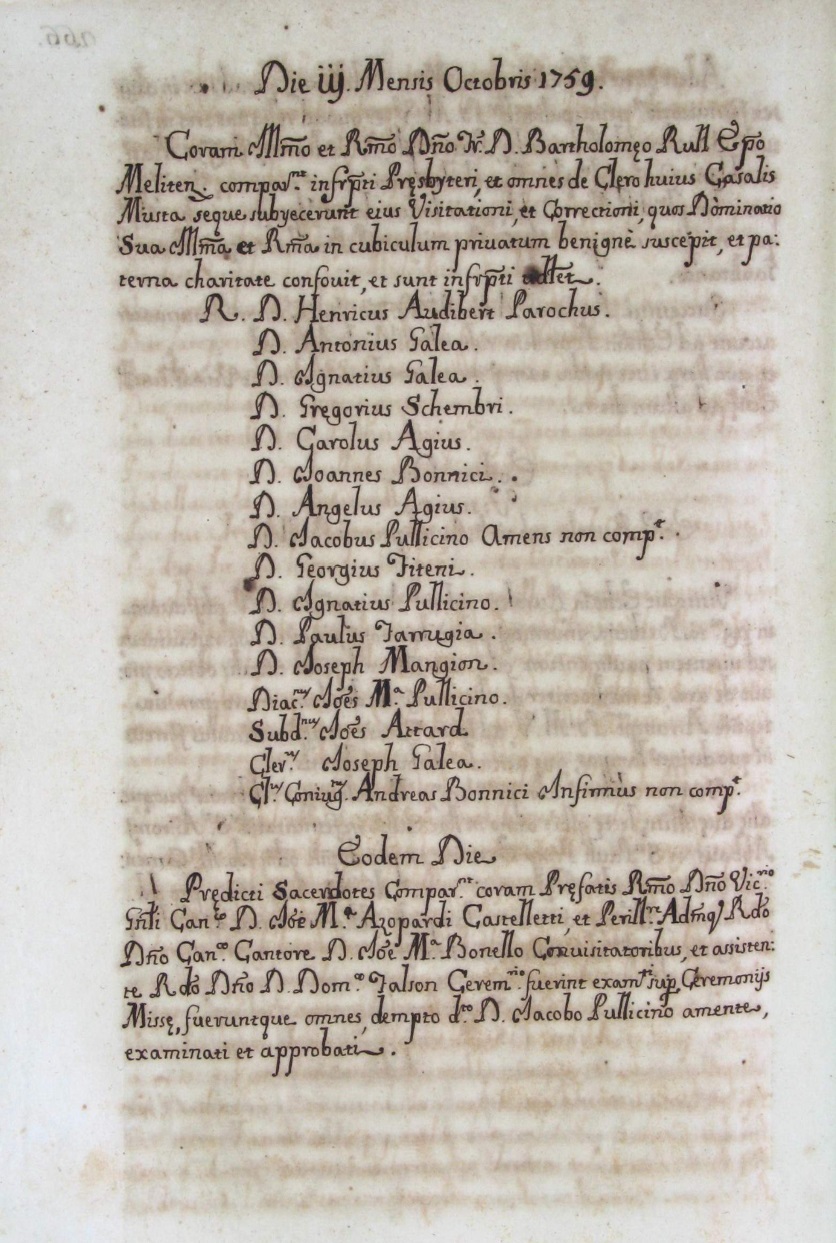 Die iij. Mensis Octobris 1759.
Coram Illm̃o et Rm̃o Dño Fr. D. Bartholomęo Rull Ep̃o
Meliten. compar.nt infrp̃ti Pręsbyteri, et omnes de Clero huius Casalis
Musta seque subyecerunt eius Visitationi, et Correctioni, quos Dominatio
Sua Illm̃a et Rm̃a in cubiculum priuatum benignè suscepit, et pa:
terna charitate confouit, et sunt infrp̃ti
R. D. Henricus Audibert Parochus.
D. Antonius Galea.
D. Ignatius Galea.
D. Gregorius Schembri.
D. Carolus Agius.
D. Joannes Bonnici.
D. Angelus Agius.
D. Jacobus Pullicino Amens non comp.t
D. Georgius Fiteni.
D. Ignatius Pullicino.
D. Paulus Farrugia.
D. Joseph Mangion.
Diac.nus Joẽs M.a Pullicino.
Subd.nus Joẽs Attard
Cler.us Joseph Galea.
Cl.us Coniug.us Andreas Bonnici Infirmùs non comp.t
Eodem Die
Prędicti Sacerdotes Compar.nt coram Pręfatis Rm̃o Dño Vic.rio
Gñli Can.co D. Joẽ M.a Azopardi Castelletti, et Perill.ri Adm̃q Rdo
Dño Can.co Cantore D. Joẽ M.a Bonello Conuisitatoribus, et assisten:
te Rdo Dño D. Dom.co Falson Cerem.rio fuerunt exam.ti sup. Ceremonijs
Missę, fueruntque omnes, dempto d.to D. Jacobo Pullicino amente,
examinati et approbati.